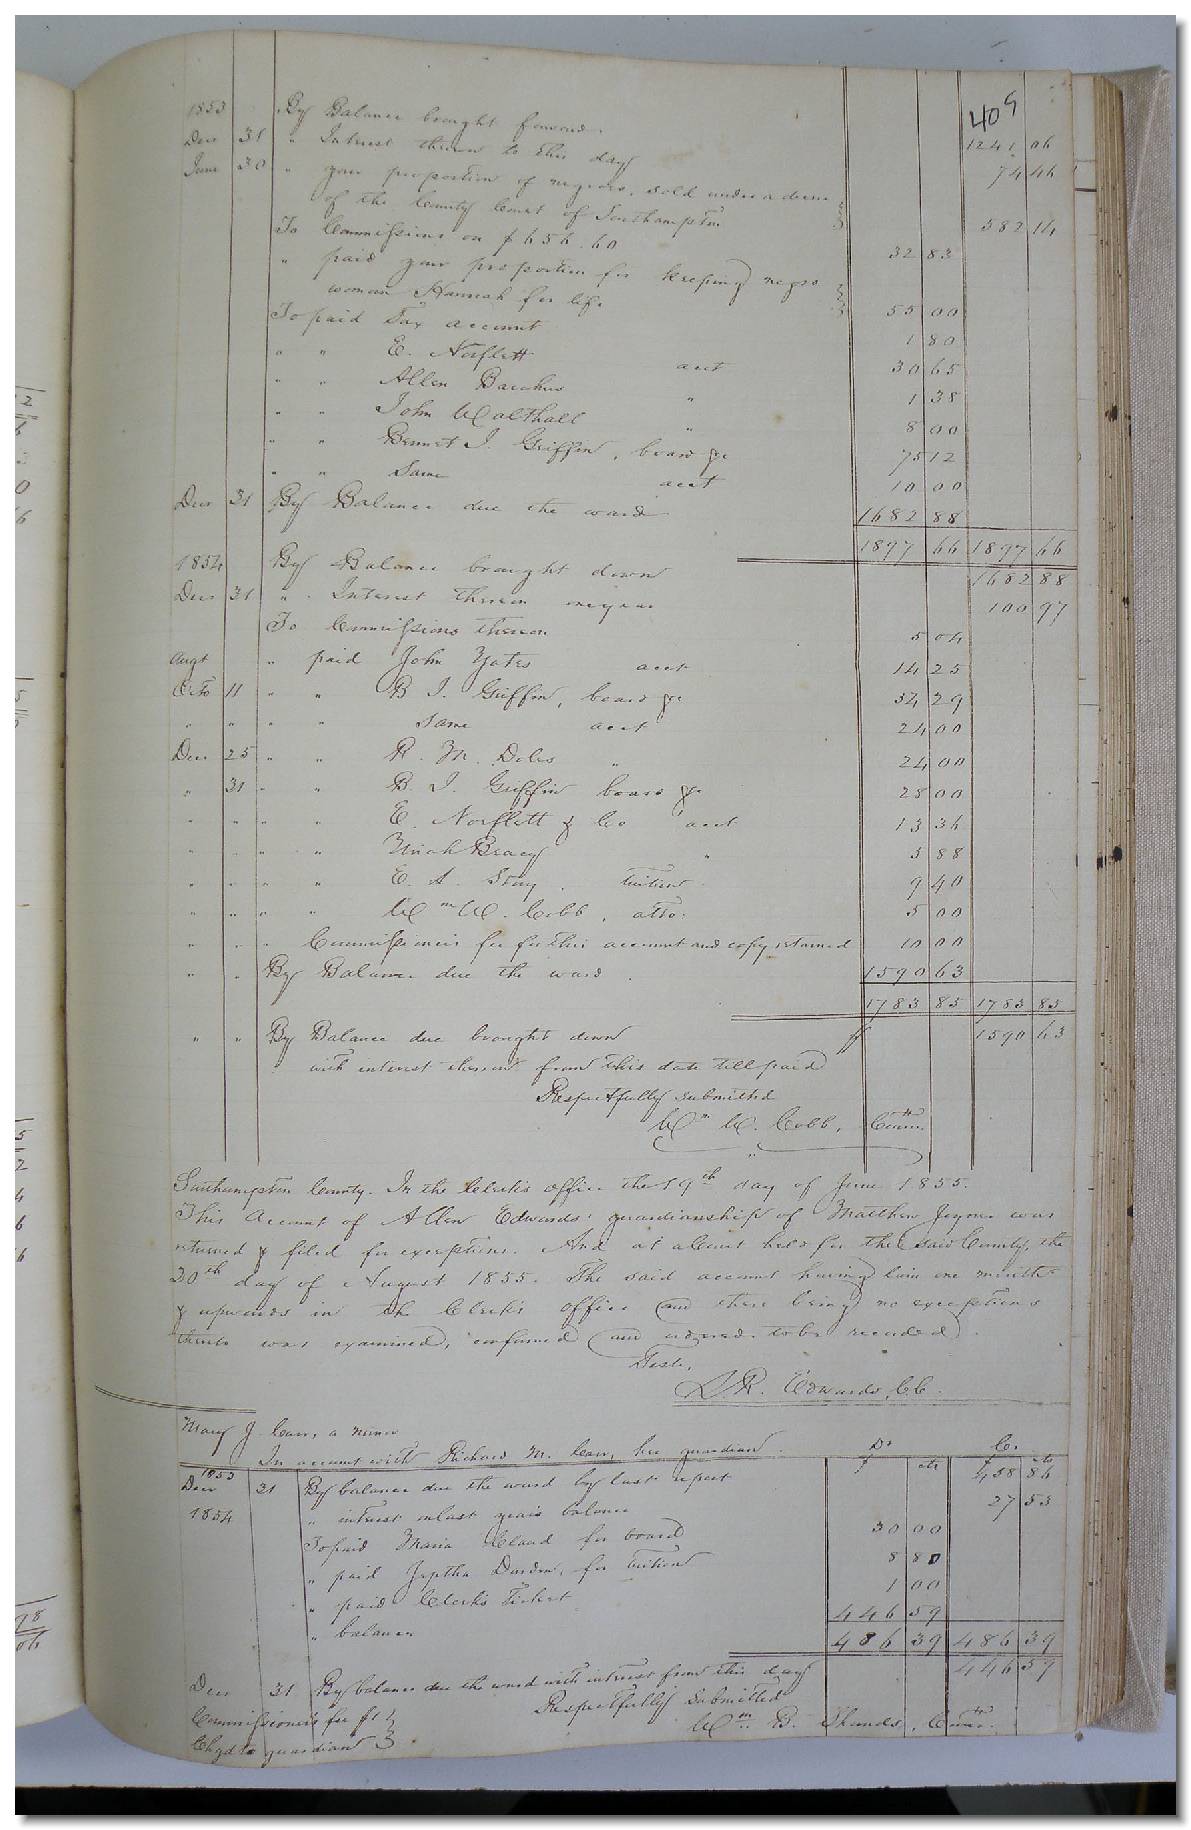 409
1853 By Balance brought forward 1241 06
Decr 31 " Interest thereon to this day 74 46
June 30 " your proportion of negroes, sold under a decree
of the County Court of Southampton 582 14
To Commissions on $656.60 32 83
" paid your proportion for keeping negro
woman Hannah for life 55 00
To paid Tax account 1 80
" " E. Norflett acct 30 65
" " Allen Bacchus " 1 38
" " John W Walthall " 8 00
" " Bennet J. Griffin, board &c 75 12
" " Same acct 10 00
Decr 31 By Balance due the ward 1682 88
1897 66 1897 66
1854 By Balance brought down 1682 88
Decr 31 " Interest thereon one year 100 97
To Commissions thereon 5 04
Augt " paid John Yates acct 14 25
Octo 11 " " B J. Griffin, board &c 54 29
" " " " Same acct 24 00
Decr 25 " " R. M. Doles " 24 00
" 31 " " B. J. Griffin board &c 28 00
" " " " E. Norflett & Co acct 13 36
" " " " Uriah Bracy " 5 88
" " " " E. A. Story, tuition 9 40
" " " " Wm W. Cobb, atto. 5 00
" " " Commissioners fee for this account and copy returned 10 00
" " By Balance due the ward 1590 63
1783 85 1783 85
" " By Balance due brought down $ 1590 63
with interest thereon from this date till paid
Respectfully Submitted
Wm W. Cobb, Comr.
Southampton County. In the Clerk's office the 19th day of June 1855.
This Account of Allen Edwards' guardianship of Matthew Joyner was
returned & filed for exceptions. And at a Court held for the said County, the
20th day of August 1855. The said account having lain one month
& upwards in the Clerk's office and there being no exceptions
thereto was examined, confirmed and ordered to be recorded.
Teste,
L. R. Edwards, CC.
Mary J. Carr, a minor
In account with Richard M. Carr, her guardian. Dr Cr.
$ cts $ cts
1853 Decr 31 By balance due the ward by last report 458 86
1854 " interest on last years balance 27 53
To paid Maria Claud for board 30 00
" paid Jeptha Darden, for tuition 8 80
" paid Clerk's Ticket 1 00
" balance 446 59
486 39 486 39
Decr 31 By balance due the ward with interest from this day 446 59
Commissioner's fee $1 Respectfully Submitted
Chgd to guardian Wm B. Shands, Comr.